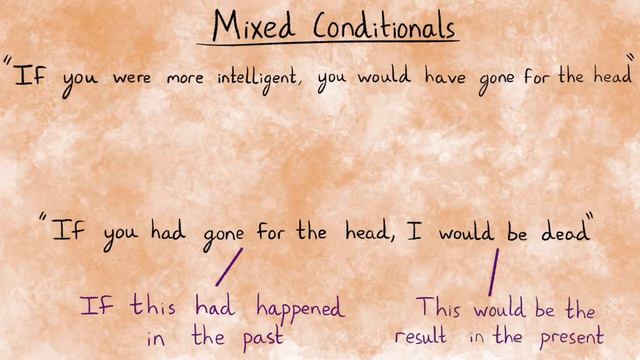 Mixed Conditionals
"If you were more intelligent, you would have gone for the head"
"If you had gone for the head, I would be dead"
If this had happened
in the past
This would be the
result in the present